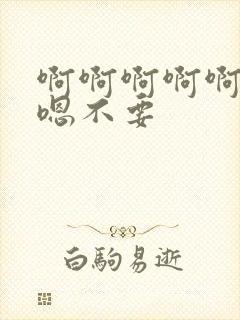 啊啊啊啊啊
嗯不要
白駒易逝